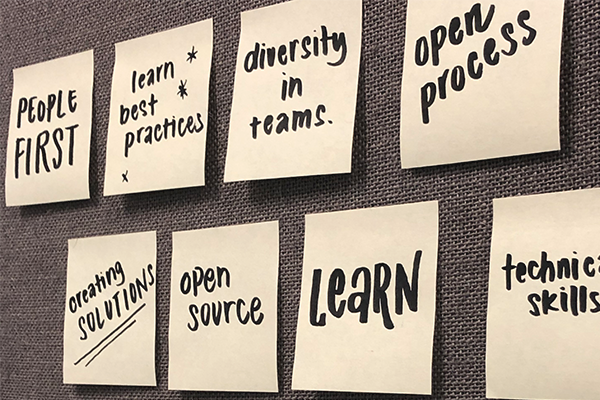 PEOPLE
FIRST
learn
best
practices
diversity
in
teams.
open
process
creating
SOLUTIONS
open
source
LEARN
skills